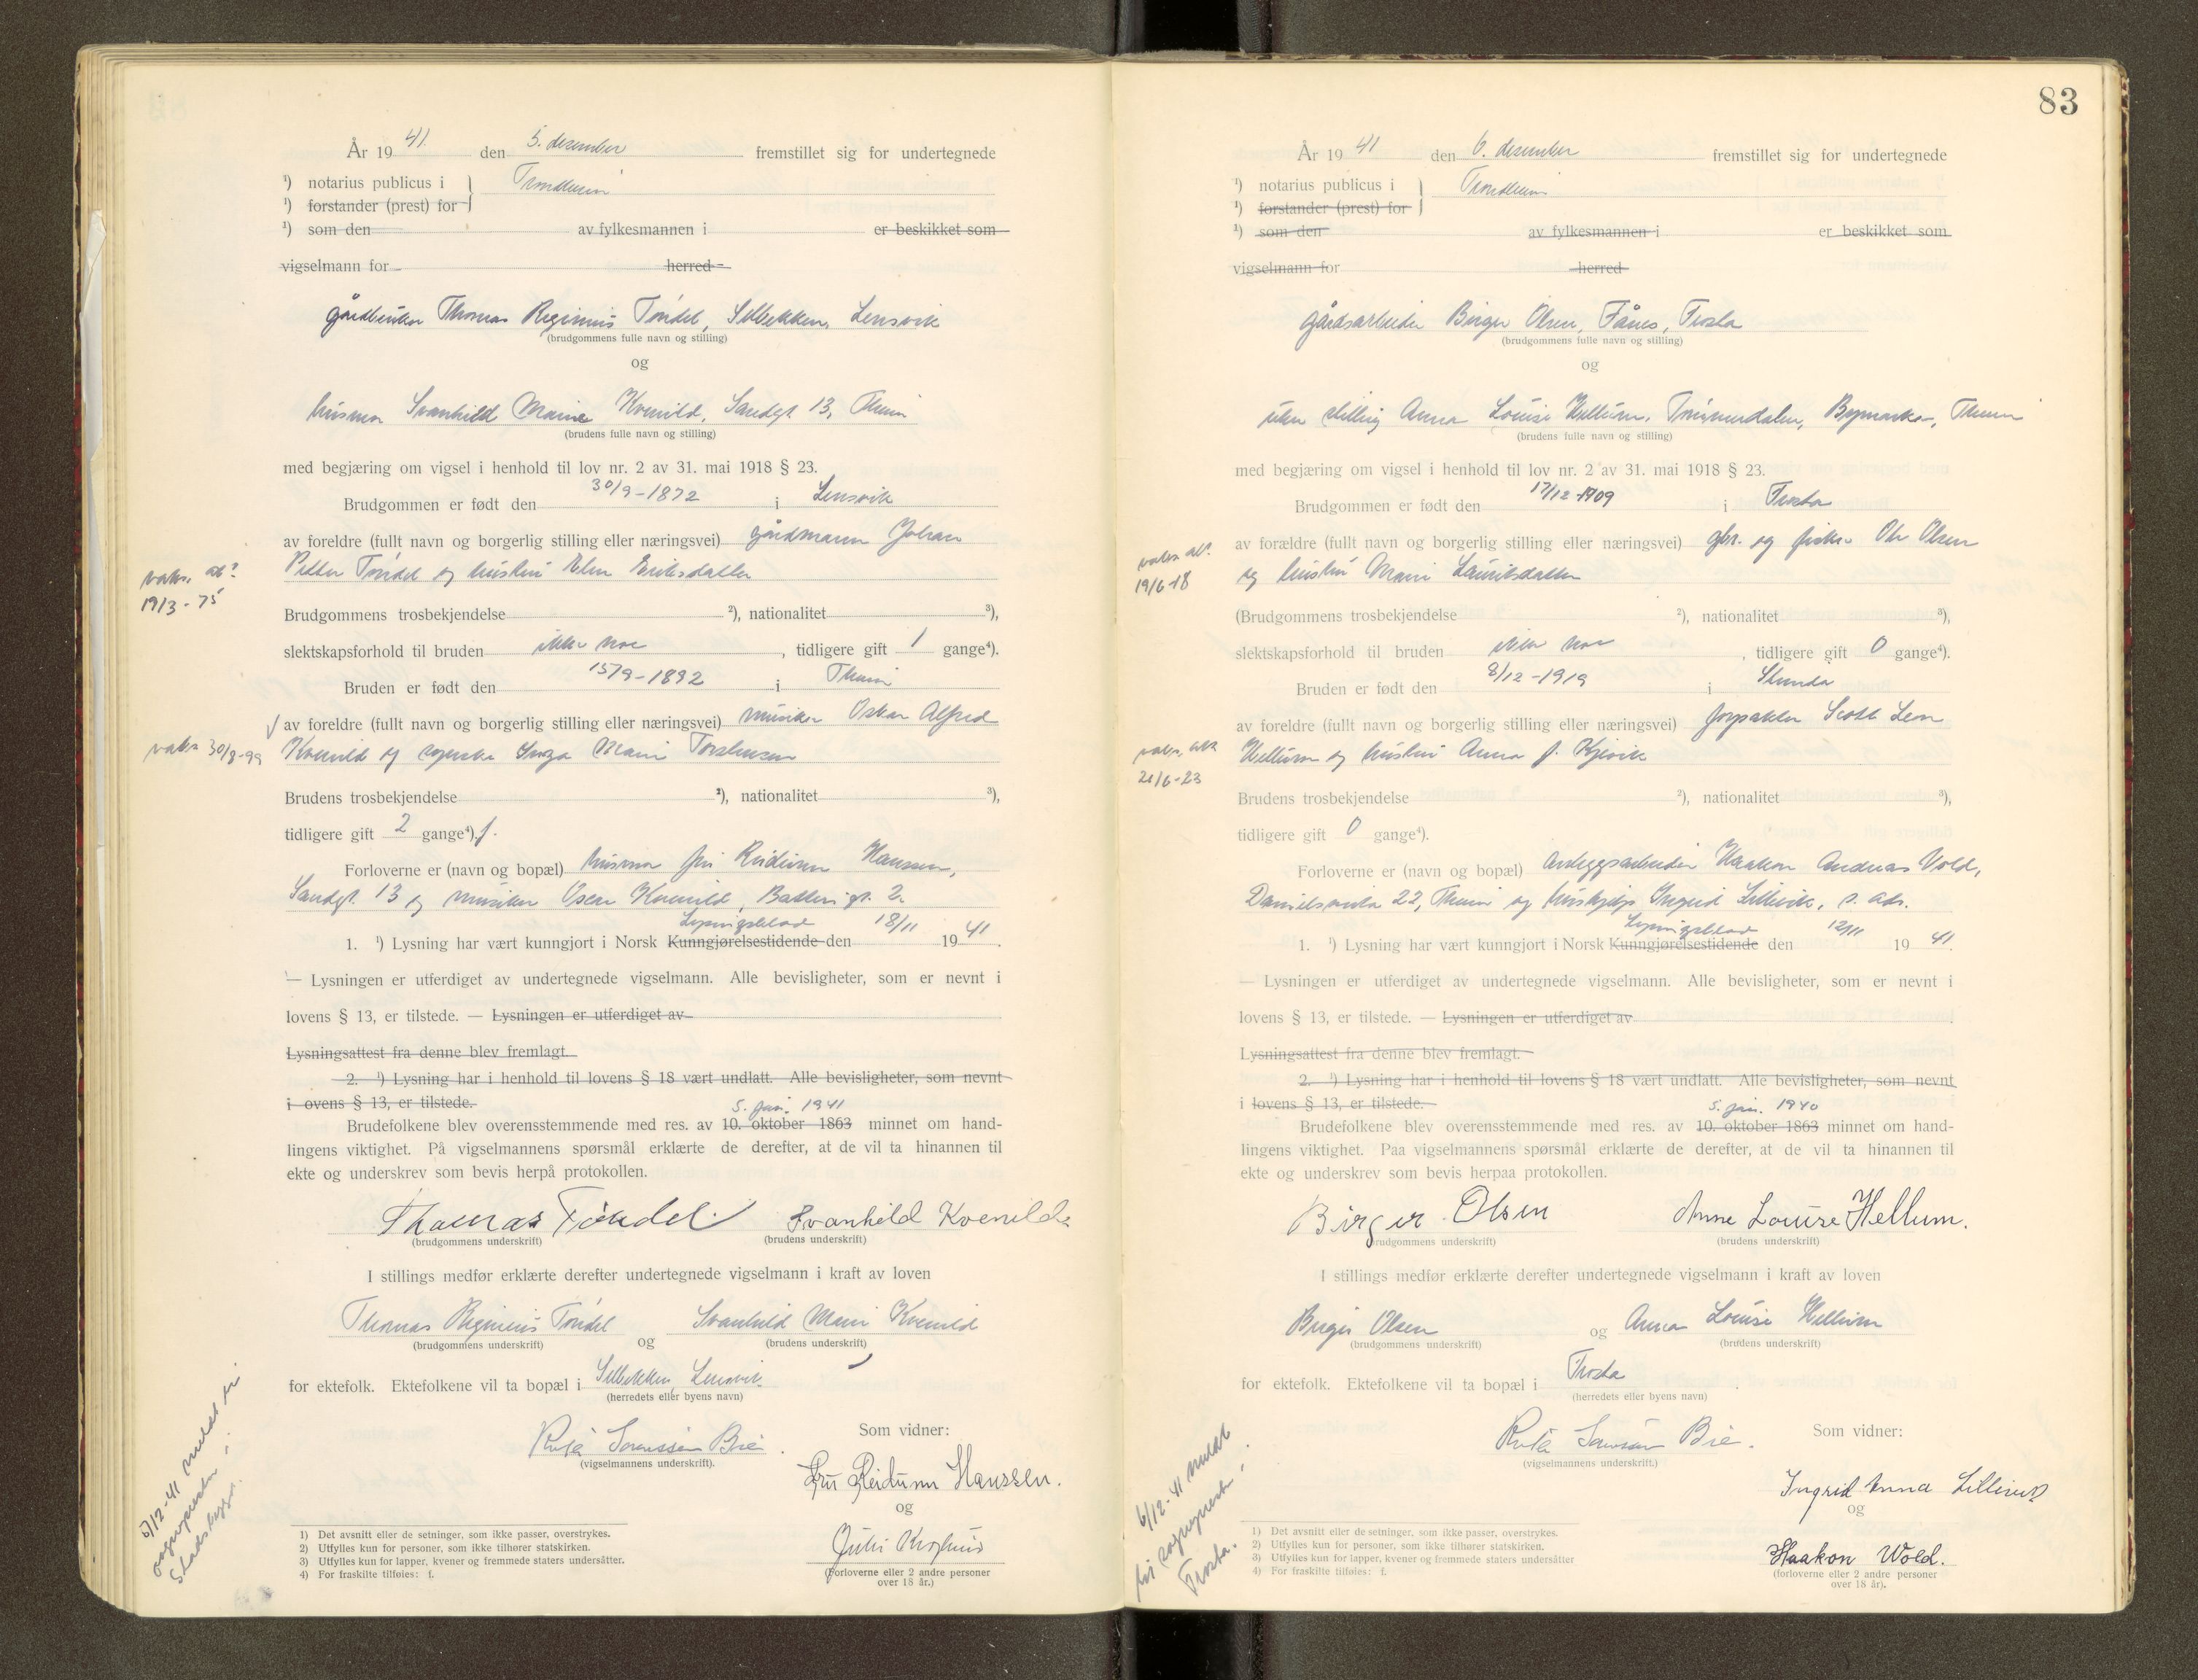 År 19 41. den 5. desember fremstillet sig for undertegnede
¹) notarius publicus i } Trondheim
¹) forstander (prest) for
¹) som den av fylkesmannen i er beskikket som
vigselmann for herred
gårdbruker Thomas Reginius Tøndel, Selbekken, Lensvik
(brudgommens fulle navn og stilling)
og
husmor Svanhild Marie Kvenild, Sandgt 13, Theim
(brudens fulle navn og stilling)
med begjæring om vigsel i henhold til lov nr. 2 av 31. mai 1918 § 23.
Brudgommen er født den 30/9-1872 i Lensvik
av foreldre (fullt navn og borgerlig stilling eller næringsvei) gårdmann Johan
Petter Tøndel og hustru Elen Eriksdatter
vaks. att.
19/3-75
Brudgommens trosbekjendelse ²), nationalitet ³),
slektskapsforhold til bruden ikke noe, tidligere gift 1 gange⁴).
Bruden er født den 15/9-1892 i Theim
av foreldre (fullt navn og borgerlig stilling eller næringsvei) musiker Oskar Alfred
Kvenild og Inga Marie
vaks. 30/8-99
Brudens trosbekjendelse ²), nationalitet ³),
tidligere gift 2 gange⁴) f.
Forloverne er (navn og bopæl) husmor fru Reidunn Hanssen,
Sandgt. 13 og musiker Oscar Kvenild, Batterigt. 2.
Lysingsblad
1. ¹) Lysning har vært kunngjort i Norsk Kunngjørelsestidende den 18/11 19 41.
— Lysningen er utferdiget av undertegnede vigselmann. Alle bevisligheter, som er nevnt i
lovens § 13, er tilstede. — Lysningen er utferdiget av
Lysningsattest fra denne blev fremlagt.
2. ¹) Lysning har i henhold til lovens § 18 vært undlatt. Alle bevisligheter, som nevnt
i ovens § 13, er tilstede.
5. jan. 1941
Brudefolkene blev overensstemmende med res. av 10. oktober 1863 minnet om hand-
lingens viktighet. På vigselmannens spørsmål erklærte de derefter, at de vil ta hinannen til
ekte og underskrev som bevis herpå protokollen.
Thomas Tøndel Svanhild Kvenild
(brudgommens underskrift) (brudens underskrift)
I stillings medfør erklærte derefter undertegnede vigselmann i kraft av loven
Thomas Reginius Tøndel og Svanhild Marie Kvenild
(brudgommens underskrift) (brudens underskrift)
for ektefolk. Ektefolkene vil ta bopæl i Selbekken, Lensvik.
(herredets eller byens navn)
Som vidner:
Sorenssen Bie.
(vigselmannens underskrift).
Fru Reidunn Hanssen.
og
(Forloverne eller 2 andre personer
over 18 år.)
5/12-41 meldt til
sognepresten i
Stadsbygd.
1) Det avsnitt eller de setninger, som ikke passer, overstrykes.
2) Utfylles kun for personer, som ikke tilhører statskirken.
3) Utfylles kun for lapper, kvener og fremmede staters undersåtter.
4) For fraskilte tilføies: f.
83
År 19 41 den 6. desember fremstillet sig for undertegnede
¹) notarius publicus i } Trondheim
¹) forstander (prest) for
¹) som den av fylkesmannen i er beskikket som
vigselmann for herred
gårdsarbeider Birger Olsen, Fånes, Frosta
(brudgommens fulle navn og stilling)
og
uten stilling Anna Louise Hellum, Bymarka, Theim
(brudens fulle navn og stilling)
med begjæring om vigsel i henhold til lov nr. 2 av 31. mai 1918 § 23.
Brudgommen er født den 17/12-1909 i Frosta
av forældre (fullt navn og borgerlig stilling eller næringsvei) gbr. og fisker Ole Olsen
og hustru Marie Lauritsdatter
vaks. att.
19/6-18
(Brudgommens trosbekjendelse ²), nationalitet ³),
slektskapsforhold til bruden ikke noe, tidligere gift 0 gange⁴).
Bruden er født den 8/12-1919 i Strinda
av foreldre (fullt navn og borgerlig stilling eller næringsvei) forpakter Scott Leon
Hellum og hustru Anna f. Kjesvik
vaks. att.
21/6-23
Brudens trosbekjendelse ²), nationalitet ³),
tidligere gift 0 gange⁴).
Forloverne er (navn og bopæl) anleggsarbeider Haakon Andreas Vold,
22, Theim og hushjelp Ingrid Lillevik, s. ads.
Lysingsblad
1. ¹) Lysning har vært kunngjort i Norsk Kunngjørelsestidende den 12/11 19 41.
— Lysningen er utferdiget av undertegnede vigselmann. Alle bevisligheter, som er nevnt i
lovens § 13, er tilstede. — Lysningen er utferdiget av
Lysningsattest fra denne blev fremlagt.
2. ¹) Lysning har i henhold til lovens § 18 vært undlatt. Alle bevisligheter, som nevnt
i lovens § 13, er tilstede.
5. jan. 1940
Brudefolkene blev overensstemmende med res. av 10. oktober 1863 minnet om hand-
lingens viktighet. Paa vigselmannens spørsmål erklærte de derefter, at de vil ta hinannen til
ekte og underskrev som bevis herpaa protokollen.
Birger Olsen Anne Louise Hellum.
(brudgommens underskrift) (brudens underskrift)
I stillings medfør erklærte derefter undertegnede vigselmann i kraft av loven
Birger Olsen og Anna Louise Hellum
(brudgommens underskrift) (brudens underskrift)
for ektefolk. Ektefolkene vil ta bopæl i Frosta
(herredets eller byens navn)
Som vidner:
Bie.
(vigselmannens underskrift.)
Ingrid Anna Lillevik
og
Haakon Wold.
(forloverne eller 2 andre personer
over 18 år).
6/12-41 meldt
til sogneprest i
Frosta.
1) Det avsnitt eller de setninger, som ikke passer, overstrykes.
2) Utfylles kun for personer, som ikke tilhører statskirken.
3) Utfylles kun for lapper, kvener og fremmede staters undersåtter
4) For fraskilte tilføies: f.